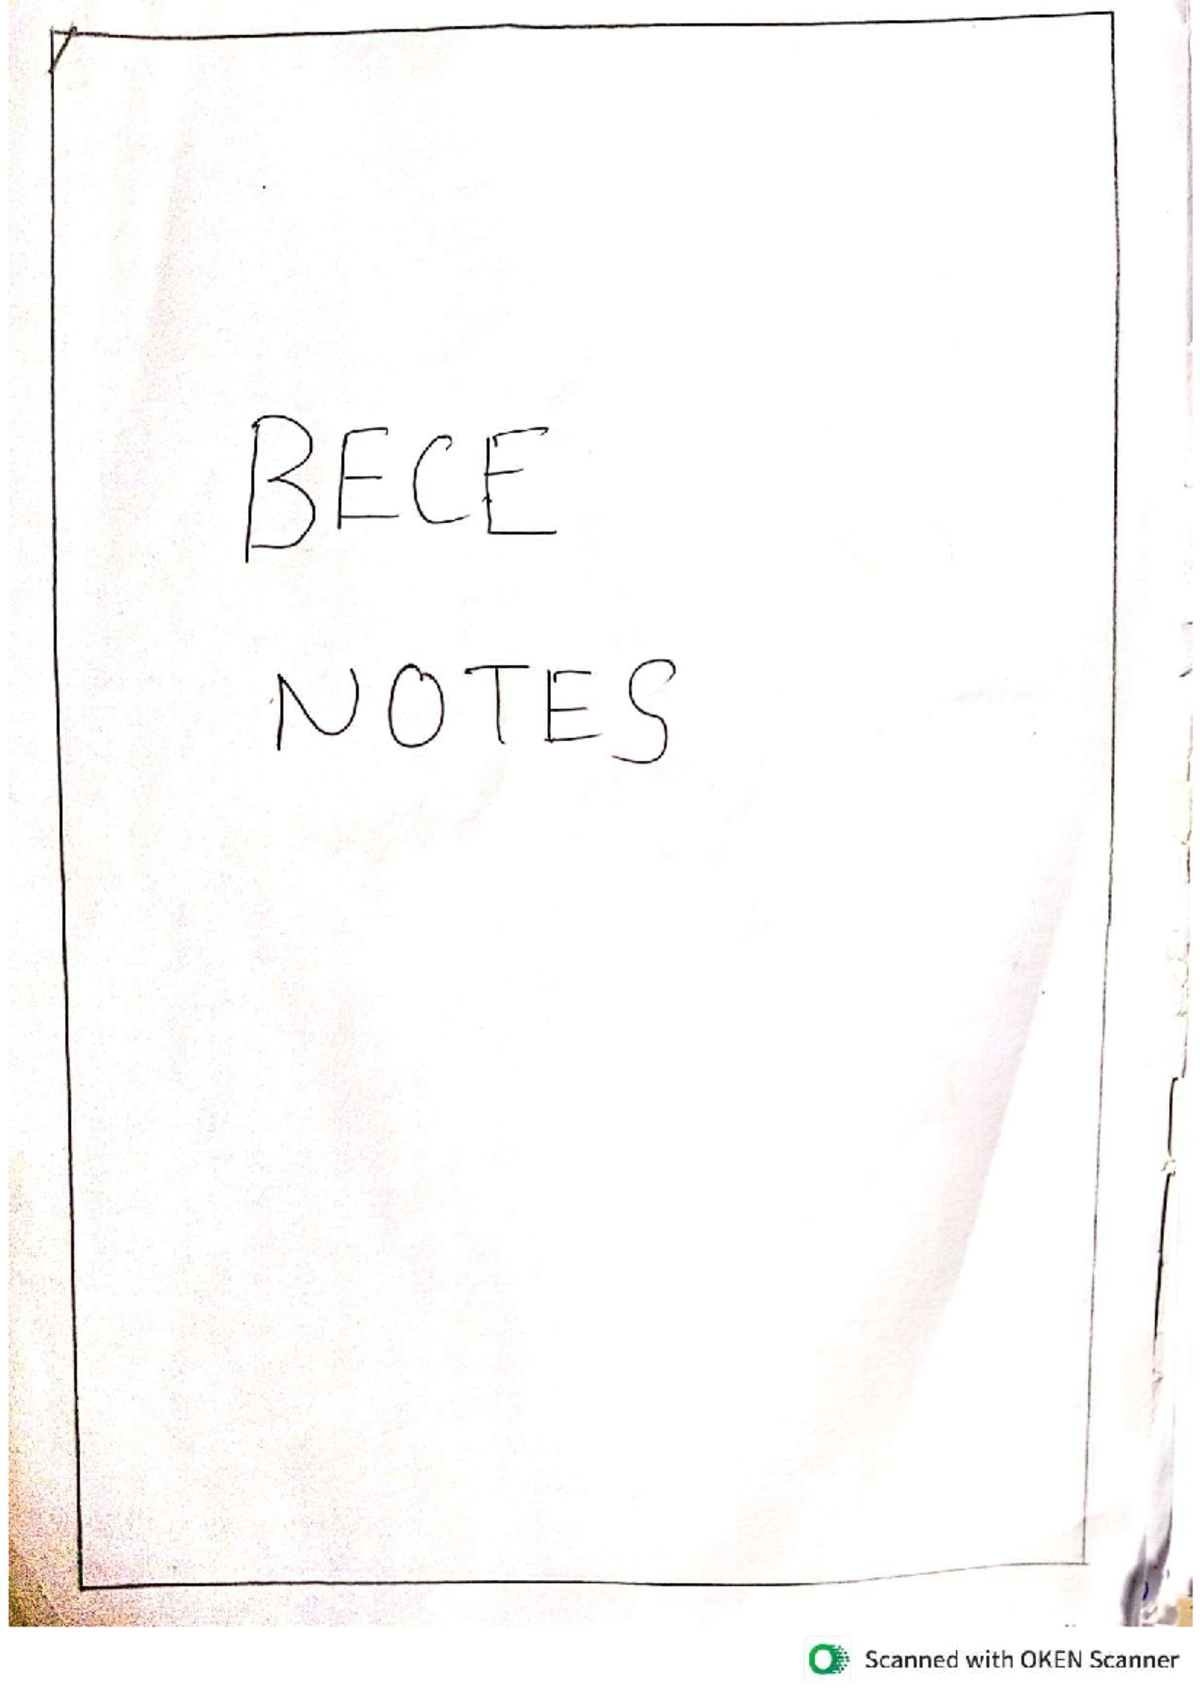 BECE
NOTES
Scanned with OKEN Scanner